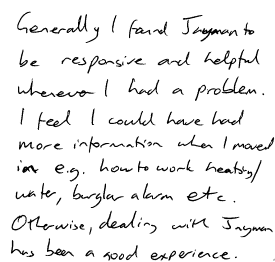 Generally I found Jnyman to
be responsive and helpful
whenever I had a problem.
I feel I could have had
more information when I moved
in e.g. how to work heating/
water, burglar alarm etc.
Otherwise, dealing with Jnyman
has been a good experience.